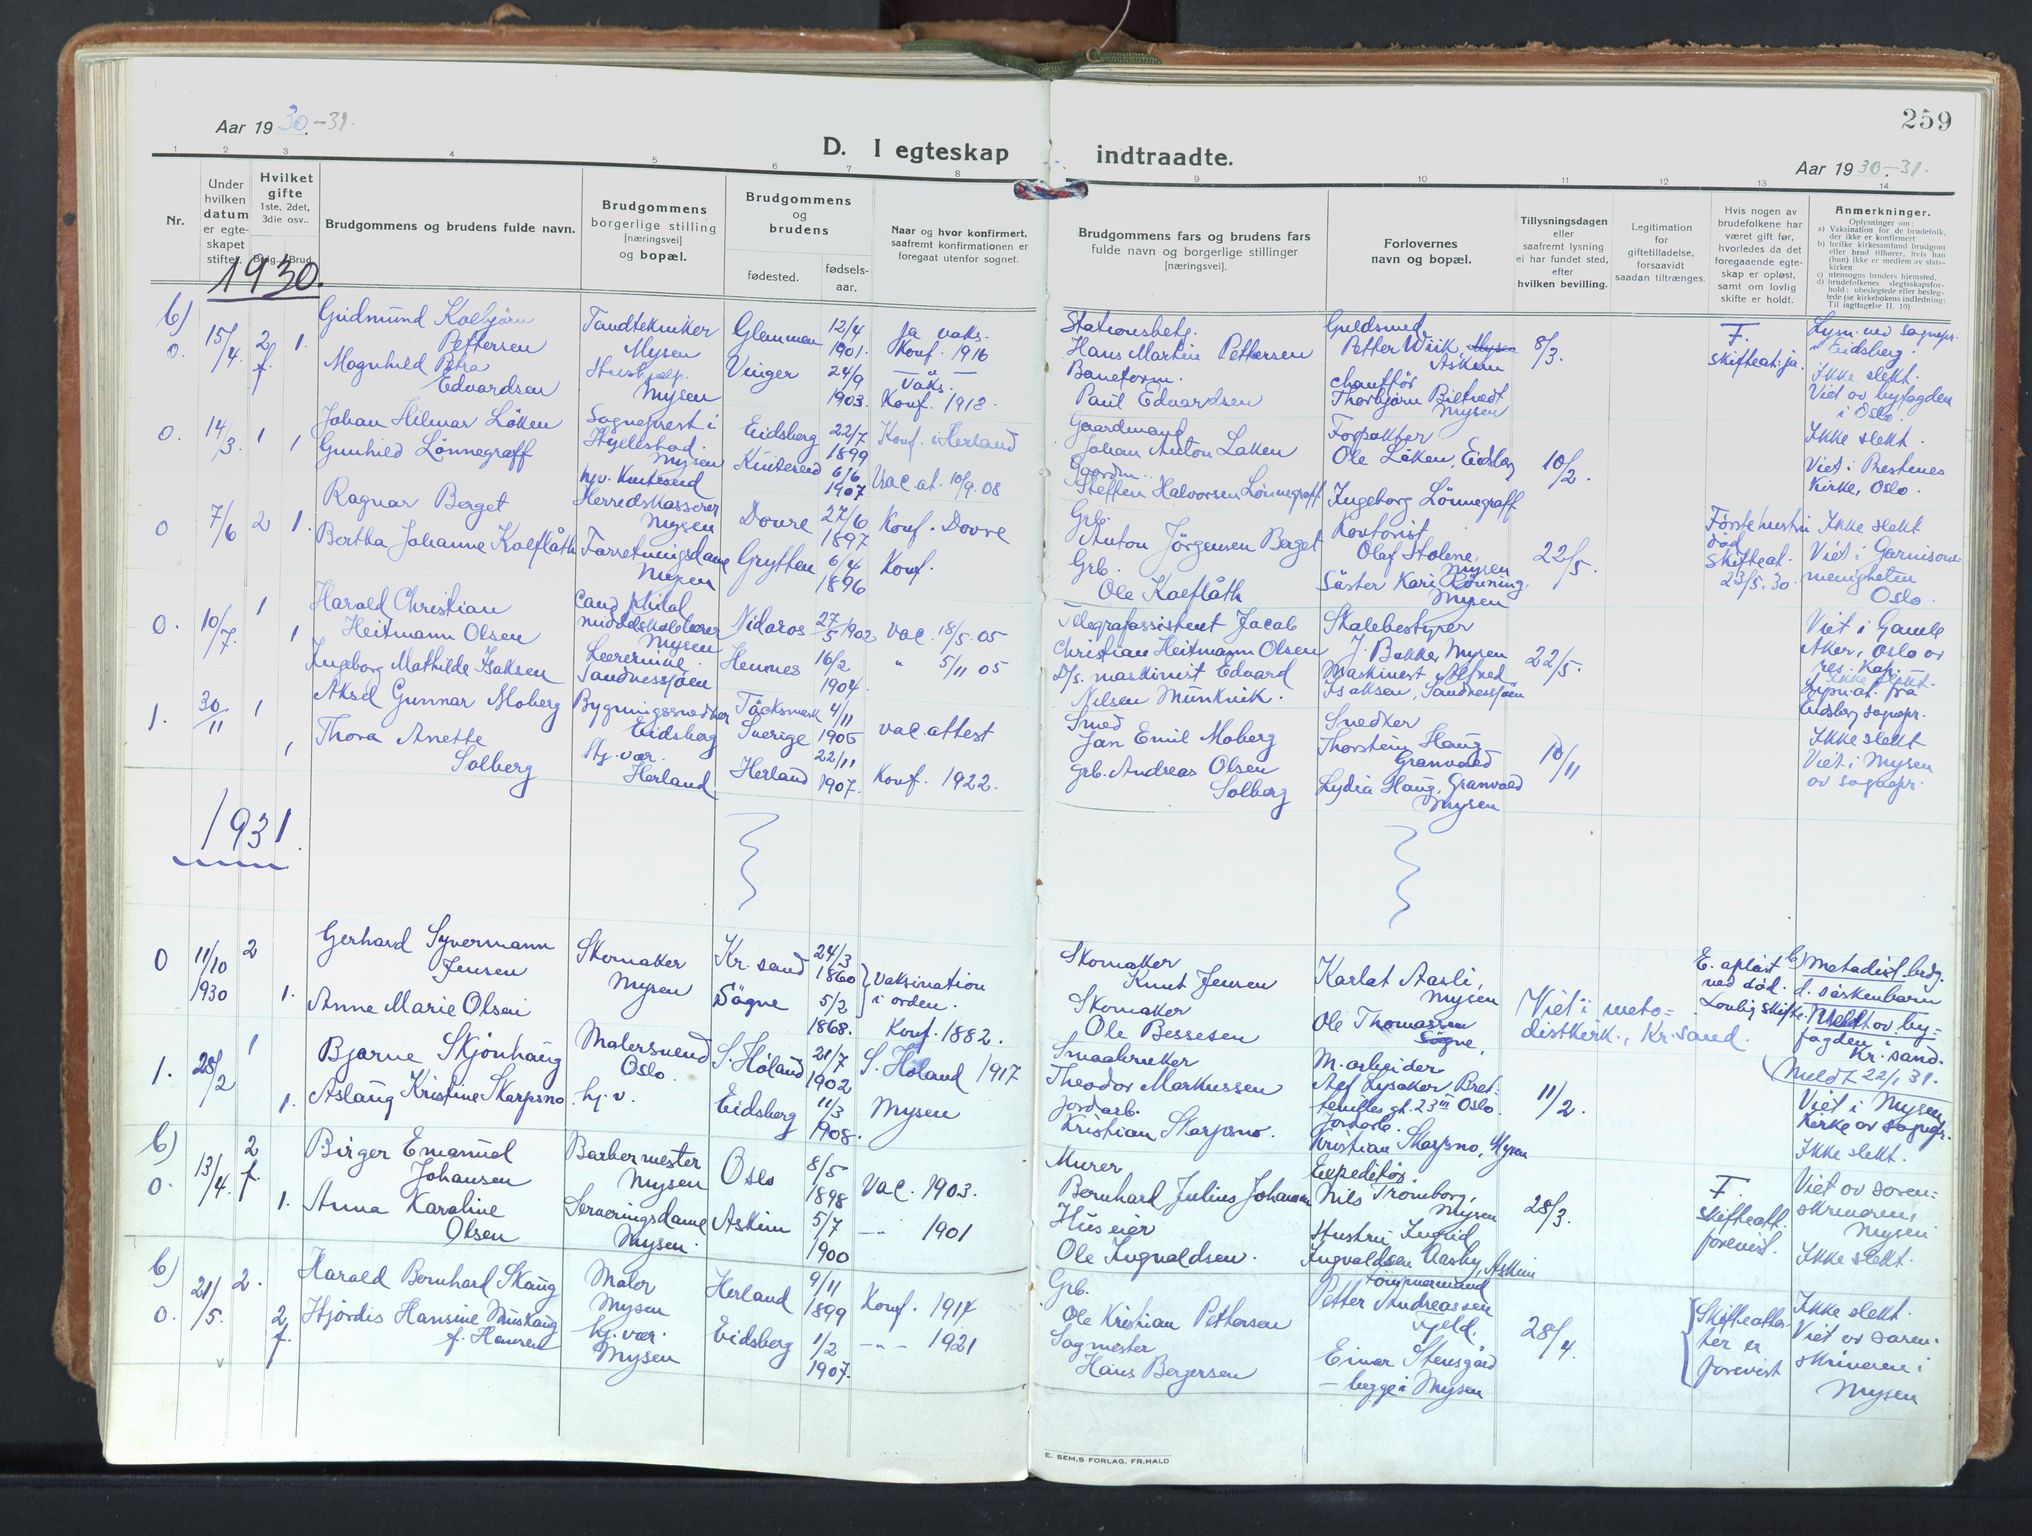 259
Aar 1930-31.
D. I egteskap indtraadte.
Aar 1930-31.
1 2 3 4 5 6 7 8 9 10 11 12 13 14
Nr.
Under hvilken datum er egteskapet stiftet.
Hvilket gifte
1ste, 2det, 3die osv..
Brdg. Brud
Brudgommens og brudens fulde navn.
Brudgommens borgerlige stilling [næringsvei] og bopæl.
Brudgommens og brudens
fødested.
fødsels-aar.
Naar og hvor konfirmert, saafremt konfirmationen er foregaat utenfor sognet.
Brudgommens fars og brudens fars fulde navn og borgerlige stillinger [næringsvei].
Forlovernes navn og bopæl.
Tillysningsdagen eller saafremt lysning ei har fundet sted, efter hvilken bevilling.
Legitimation for giftetilladelse, forsaavidt saadan tiltrænges.
Hvis nogen av brudefolkene har været gift før, hvorledes da det foregaaende egteskap er opløst, samt om lovlig skifte er holdt.
Anmerkninger.
Oplysninger om:
a) Vaksination for de brudefolk, der ikke er konfirmert
b) hvilke kirkesamfund brudgom eller brud tilhører, hvis han (hun) ikke er medlem av statskirken
c) utensogns bruders hjemsted.
d) brudefolkenes slegtsskapsforhold: ubeslegtede eller beslegtede (se kirkebokens indledning: Til iagttagelse II. 10)
1930.
b) 0. 15/4. 2 f. 1.
Gudmund Kolbjørn Pettersen
Magnhild Petra Edvardsen
Tandtekniker Mysen
Mysen
Glemmen 12/4 1901.
Vinger 24/9 1903.
ja vaks. Konf. 1916
Vaks. Konf. 1918.
Stationsbetj. Hans Martin Pettersen
Baneform. Paul Edvardsen
Guldsmed Petter Wiik Askim
chauffør Thorbjørn Mysen
8/3.
F. skifteat. ja.
Lysn. ved sognepr. i Eidsberg.
Ikke slekt.
Viet av byfogden i Oslo.
0. 14/3. 1 1
Johan Hilmar Løken
Gunhild Lønnegraff
Sogneprest i Hyllestad. Mysen
hjv. Kviteseid
Eidsberg 22/7 1899
Kviteseid 6/6 1907
Konf. i Herland
Vac. at. 10/9. 08
Gaardmand Johan Anton Løken
Gaardm. Steffen Halvorsen Lønnegraff
Forpakter Ole Løken, Eidsberg
Ingeborg Lønnegraff
10/2.
Ikke slekt.
Viet i Prestenes Kirke, Oslo.
0 7/6 2 1.
Ragnar Berget
Bertha Johanne Kolflåth
Herredskasserer Mysen
Forretningsdame Mysen
Dovre 27/6 1897
Grytten 6/4 1896
Konf. Dovre
Konf.
Grb. Anton Jørgensen Berget
Grb. Ole Kolflåth
Kontorist Olaf Stolene, Mysen
Søster Kari Rønning, Mysen
22/5.
Første hustru død skifteat. 23/5. 30.
Ikke slekt
Viet i Garnisonsmenigheten Oslo.
0. 10/7. 1 1
Harald Christian Heitmann Olsen
Ingeborg Mathilde Isaksen
Cand. philol. middelskolelærer Mysen
Lærerinne. Sandnessjøen
Nidaros 27/5 1902
Hemnes 16/2. 1904.
vac. 18/5. 05
" 5/11 05
Telegrafassistent Jacob Christian Heitmann Olsen
D/s. maskinist Edvard Nilsen Munkvik.
Skolebestyrer J. Bakke, Mysen
Maskinist Alfred Isaksen, Sandnessjøen
22/5.
Viet i Gamle Aker, Oslo av res. Kap.
Ikke slekt.
Lysn.at. fra Eidsberg sognepr.
1. 30/11 1 1
Aksel Gunnar Moberg
Thora Anette Solberg
Bygningssnedker Eidsberg
Hj. vær. Herland
Töcksmark Sverige 4/11 1905
Herland 22/11 1907.
vac. attest
Konf. 1922.
Smed Jan Emil Moberg
Grb. Andreas Olsen Solberg
Snedker Thorstein Haug Granvold
Lydia Haug, Granvold Mysen
10/11
Ikke slekt
Viet i Mysen av sognepr.
1931.
0 11/10 1930 2 1.
Gerhard Syvermann Jensen
Anne Marie Olsen
Skomaker Mysen
Kr. sand 24/3 1860
Søgne 5/2 1868.
vaksination i orden.
Konf. 1882.
Skomaker Knut Jensen
Skomaker Ole Bessesen
Karlat Aasli, Mysen
Ole Thomassen Søgne,
Viet i metodistkirk., Kr. sand.
E. opløst ved død. Lovlig skifte.
b) metodist. brdg.
d. søskenbarn
Meldt av byfogden i Kr. sand.
(Meldt 22/1 31.
1. 28/2 1 1.
Bjarne Skjønhaug
Aslaug Kristine Skarpsno
Malersvend Oslo.
hj. v.
S. Høland 21/7 1902
Eidsberg 11/3 1908.
S. Høland 1917
Mysen
Smaabruker Theodor Markussen
Jordarb. Kristian Skarpsno.
M. arbeider Oslo.
Jordarb. Kristian Skarpsno, Mysen
11/2.
Viet i Mysen Kirke av sognepr.
Ikke slekt.
b) 0. 13/4. 2 f. 1.
Birger Emanuel Johansen
Anna Karoline Olsen
Barbermester Mysen
Serveringsdame Mysen.
Oslo 8/5 1898
Askim 5/7 1900
Vac. 1903.
-"- 1901
Murer Bernhard Julius Johansen
Huseier Ole Ingvaldsen.
Expeditør Nils Trømborg, Mysen
Hustru Ingrid Ingvaldsen Aasby, Askim
28/3.
F. skifteatt. forevist.
Viet av sorenskriveren, Mysen
Ikke slekt.
b) 0. 21/5. 2. 2 f.
Harald Bernhard Skaug
Hjørdis Hansine Muskaug f. Hansen
Maler Mysen
hj. vær. Mysen
Herland 9/11 1899
Eidsberg 1/2 1907.
Konf. 1914
-"- 1921
Grb. Ole Kristian Pettersen
Sagmester Hans Bergersen
Tømmermand Petter Andreassen Fjeld.
Einar Stensgård
- begge i Mysen
28/4.
Skifteattester er forevist
Ikke slekt.
Viet av sorenskriveren i Mysen
E. SEM,S FORLAG. FR.HALD